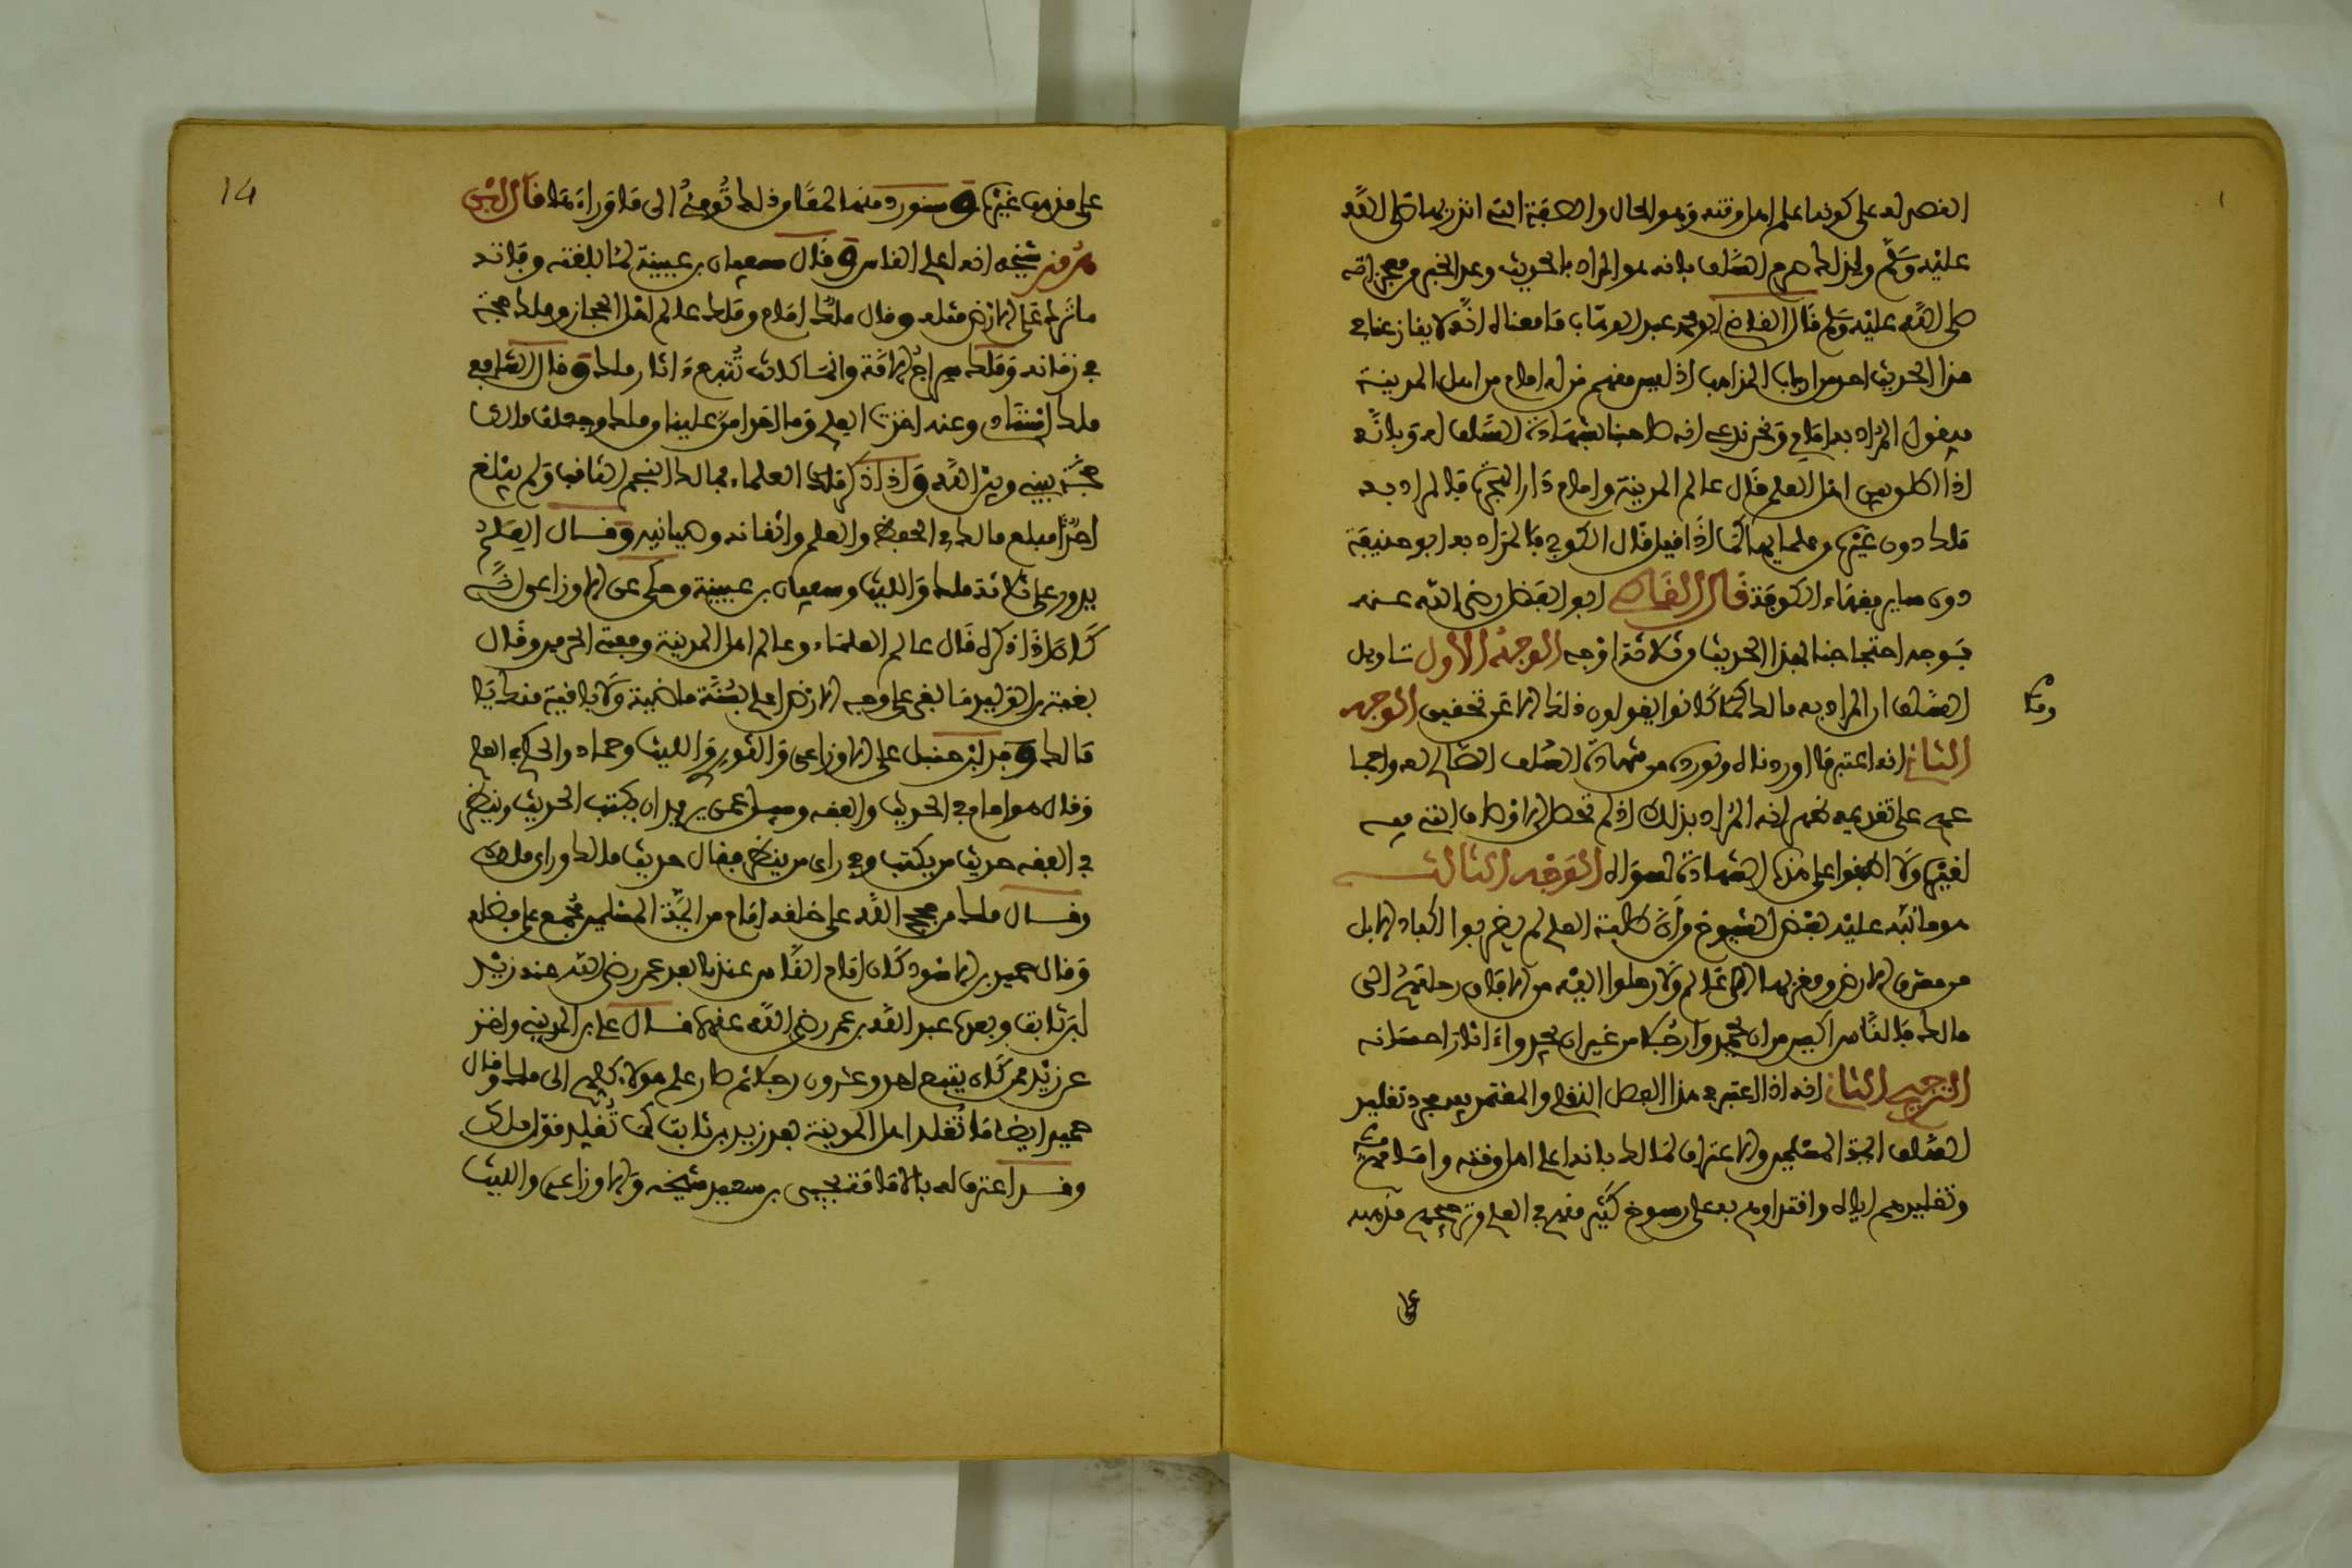 انفصر له على كونه اعلم اهل وقته وهو الحال والصفة التي انذر بها صلى الله
عليه وسلم ولذلك السلف بانه هو المراد بالحديث وعد الخبر من معجزاته
صلى الله عليه وسلم قال القاضي ابو محمد عبد الوهاب ما معناه انه لا ينازعنا في
هذا الحديث احد من ارباب المذاهب اذ ليس منهم من له امام من اهل المدينة
فيقول المراد به امامي ونحن ندعي انه صاحبنا بشهادة السلف له وبانه
اذا اطلق بين اهل العلم قال عالم المدينة وامام دار الهجرة فالمراد به
ملك دون غيره من علمائها كما اذا قيل قال الكوفي فالمراد به ابو حنيفة
دون ساير فقهاء الكوفة قال القاضي ابو الفضل رضي الله عنه
فوجه احتجاجنا بهذا الحديث من ثلاثة اوجه الوجه الاول تاويل
السلف ان المراد به مالك كما كانوا يقولون ذلك الا عن تحقيق الوجه
الثاني انه اعتبر ما اوردناه ونورده من شهادة السلف الصالح له واجما
عهم على تقديمه انه المراد بذلك اذ لم تحصل الاوصاف التي فيه
لغيره ولا اطبقوا على هذه الشهادة لسواه الوجه الثالث
هو ما نبه عليه بعض الشيوخ وان طلبة العلم لم يضربوا اكباد الابل
من مشرق الارض ومغربها الى عالم ولا رحلوا اليه من الافاق رحلتهم الى
مالك فالناس اكيس من ان يحمدوا رجلا من غير ان يجدوا ءاثار احسانه
الترجيح الثاني انه اذا اعتبر في هذا الفصل النقل والمعتمد فيه مجرد تقليد
السلف ايمة المسلمين والاعتراف لمالك بانه اعلم اهل وقته وامامهم
وتقليدهم اياه واقتداوهم به على رسوخ كثير منهم في العلم وترجيحهم مذهبه
على مذهب غيره وسنورد منها لمعا من ذلك تومئ الى ما وراءها فال ابن
هرمز شيخه انه اعلم الناس وقال سفيان بن عيينة لما بلغته وفاته
ما ترك على الارض مثله وقال ملك امام وملك عالم اهل الحجاز وملك حجة
في زمانه وملك سراج الامة وانما كنا نتبع ءاثار ملك وقال الشافعي
ملك استاذي وعنه اخذت العلم وما احد امن علينا من ملك وجعلت ملكا
حجة بيني وبين الله واذا ذكر العلماء فمالك النجم الثاقب ولم يبلغ
احد مبلغ مالك في الحفظ والعلم واتقانه وصيانته وقال العلم
يدور على ثلاثة ملك والليث وسفيان بن عيينة وحكى عن الاوزاعي انه
كان اذا ذكره قال عالم العلماء وعالم اهل المدينة ومفتي الحرمين وقال
بقية بن الوليد ما بقي على وجه الارض اعلم بسنة ماضية ولا باقية منك يا
مالك وقدم ابن حنبل على الاوزاعي والثوري والليث وحماد والحكم في العلم
وقال هو امام في الحديث والفقه وسئل عمن يريد ان يكتب الحديث وينظر
في الفقه حديث من يكتب وفي راى من ينظر فقال حديث مالك وراى مالك
وقال ملك من حجج الله على خلقه امام من ايمة المسلمين مجمع على فضله
وقال حميد بن الاسود كان امام الناس عندنا بعد عمر رضي الله عنه زيد
ابن ثابت وبعده عبد الله بن عمر رضي الله عنهما قال علي بن المديني واخذ
عن زيد ممن كان يتبع احد وعشرون رجلا ثم صار علم هولاء كلهم الى ملك وقال
حميد ايضا ما تقلد اهل المدينة بعد زيد بن ثابت كما تقلد قول ملك
وقد اعترف له بالامامة يحيى بن سعيد شيخه والاوزاعي والليث
14